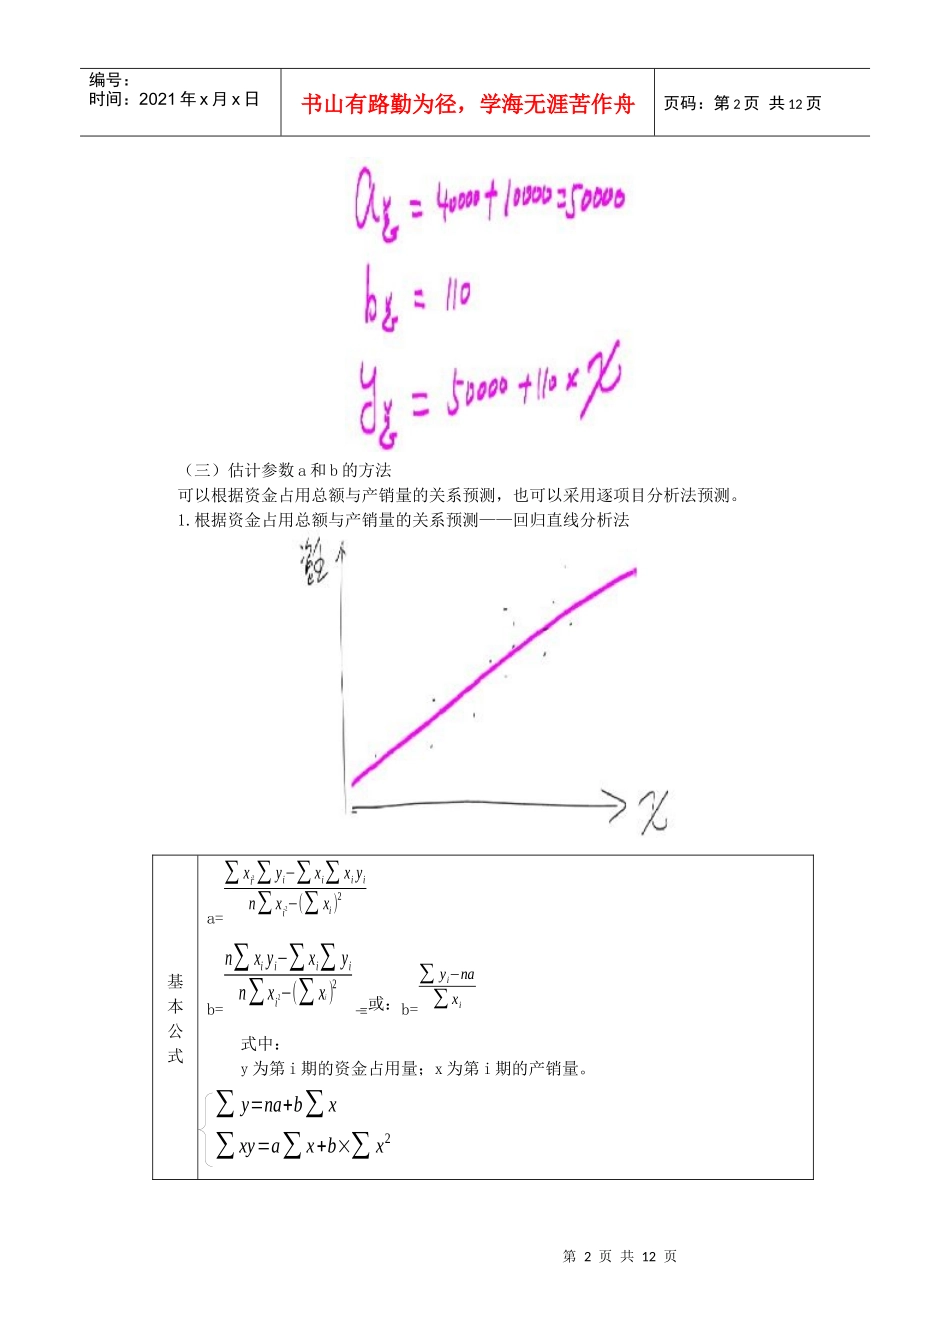 编号：
时间：2021 年 x 月 x 日
书山有路勤为径，学海无涯苦作舟
页码：第 2 页 共 12 页
a总 = 40000+10000=50000
b总 = 110
y总 = 50000+110×x
（三）估计参数 a 和 b 的方法
可以根据资金占用总额与产销量的关系预测，也可以采用逐项目分析法预测。
1.根据资金占用总额与产销量的关系预测——回归直线分析法
x
基本公式
a=(∑xi²∑yi−∑xi∑xiyi)/(n∑xi²−(∑xi)²)
b=(n∑xiyi−∑xi∑yi)/(n∑xi²−(∑xi)²) =或：b=(∑yi−na)/∑xi
式中：
y 为第 i 期的资金占用量；x 为第 i 期的产销量。
∑y=na+b∑x
∑xy=a∑x+b×∑x²
第 2 页 共 12 页